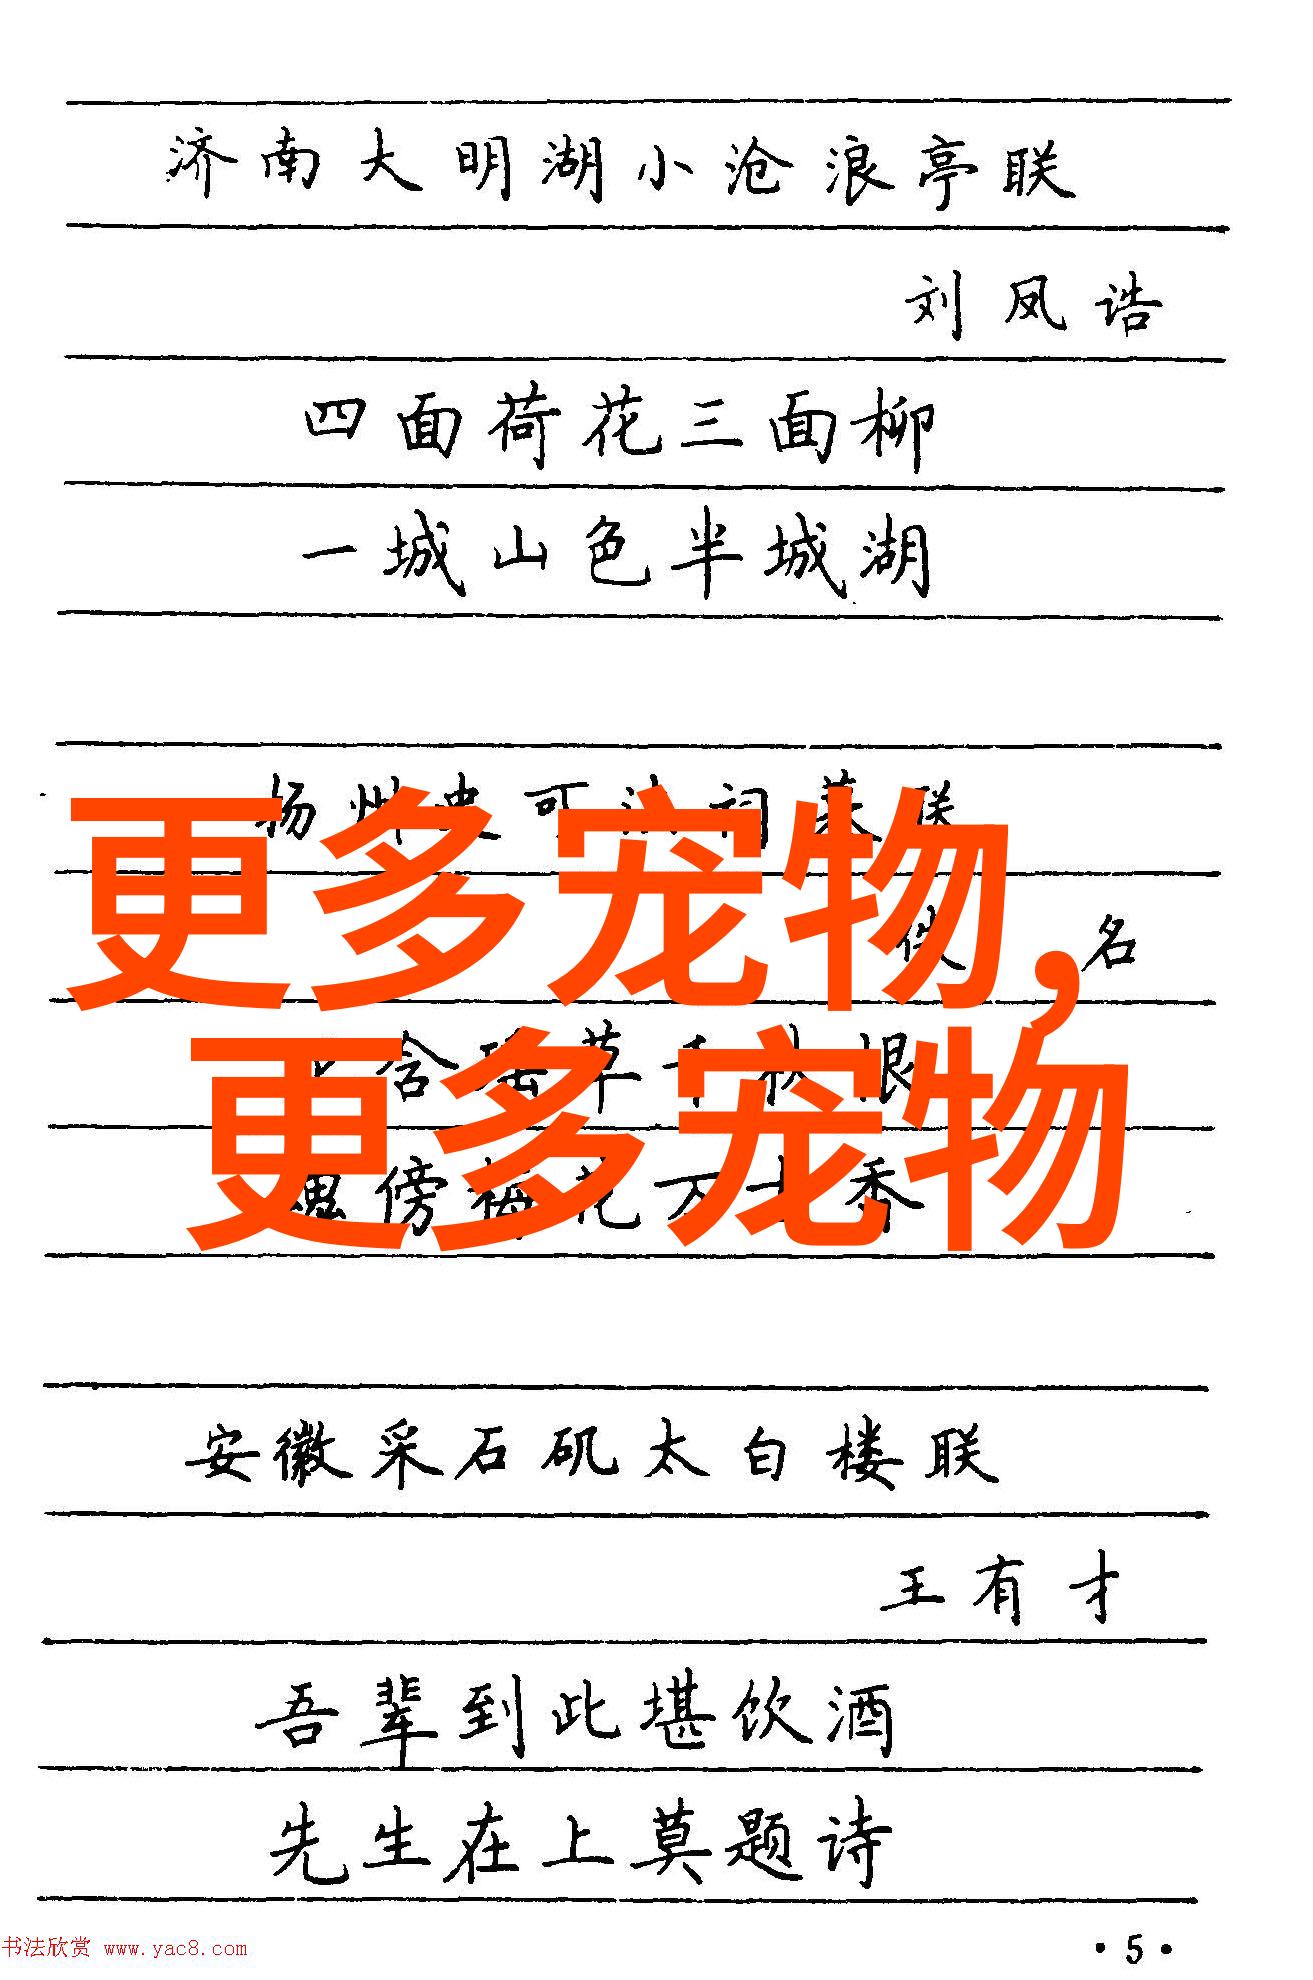 济南大明湖小沧浪亭联
刘凤诰
四面荷花三面柳
一城山色半城湖
扬州史可法祠墓联
佚名
更多宠物,
含瑶草千秋恨
更多宠物
魂傍梅花万古香
安徽采石矶太白楼联
王有才
吾辈到此堪饮酒
先生在上莫题诗
书法欣赏 www.yac8.com
·5·